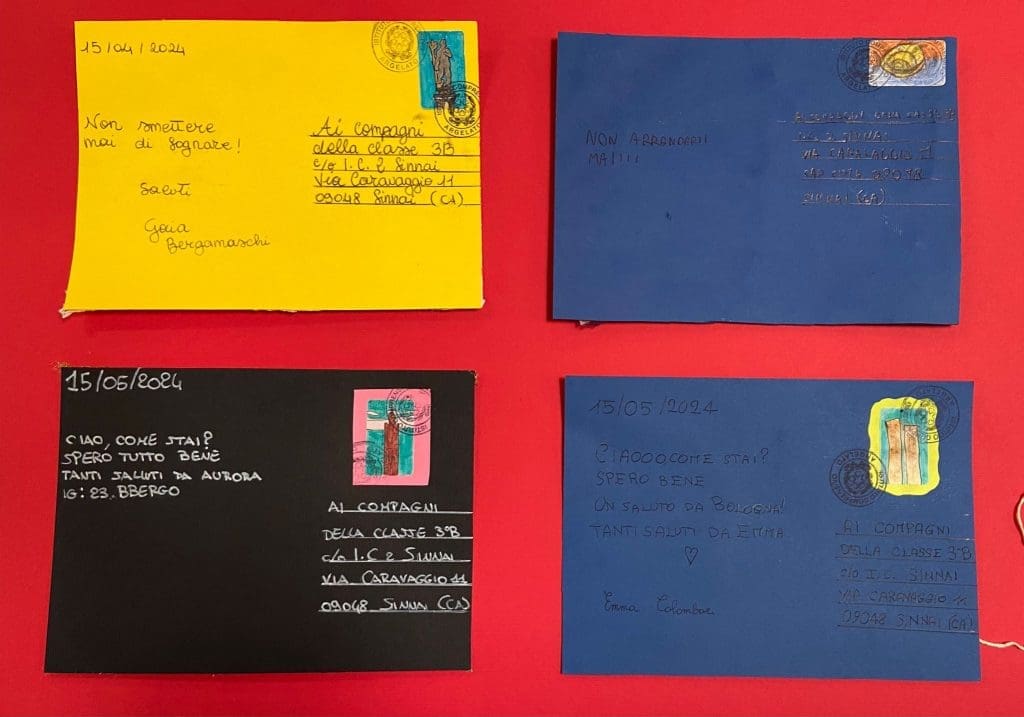 15/04/2024
Non smettere
mai di sognare!
Saluti
Gaia
Bergamaschi
Ai compagni
della classe 3B
c/o I.C. 2 Sinnai
Via Caravaggio 11
09048 Sinnai (CA)
NON ARRENDERTI
MAI!!!!
SINNAI (CA)
15/05/2024
CIAO, COME STAI?
SPERO TUTTO BENE
TANTI SALUTI DA AURORA
IG: 23.BBERGO
AI COMPAGNI
DELLA CLASSE 3°B
c/o I.C 2 SINNAI
VIA CARAVAGGIO 11
09048 SINNAI (CA)
15/05/2024
CIAOOO, COME STAI?
SPERO BENE
UN SALUTO DA BOLOGNA!
TANTI SALUTI DA EMMA
Emma
AI COMPAGNI
DELLA CLASSE 3°B
c/o I.C. SINNAI
VIA CARAVAGGIO 11
09048 SINNAI (CA)